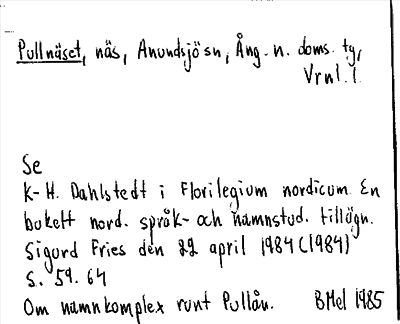 Pullnäset, näs, Anundsjö sn, Ång. n. doms. tg,
Vrnl. l.
Se
K-H. Dahlstedt i Florilegium nordicum. En
bukett nord. språk- och namnstud. tillägn.
Sigurd Fries den 22 april 1984 (1984)
S. 59. 64
Om namnkomplex runt Pullån. BMel 1985